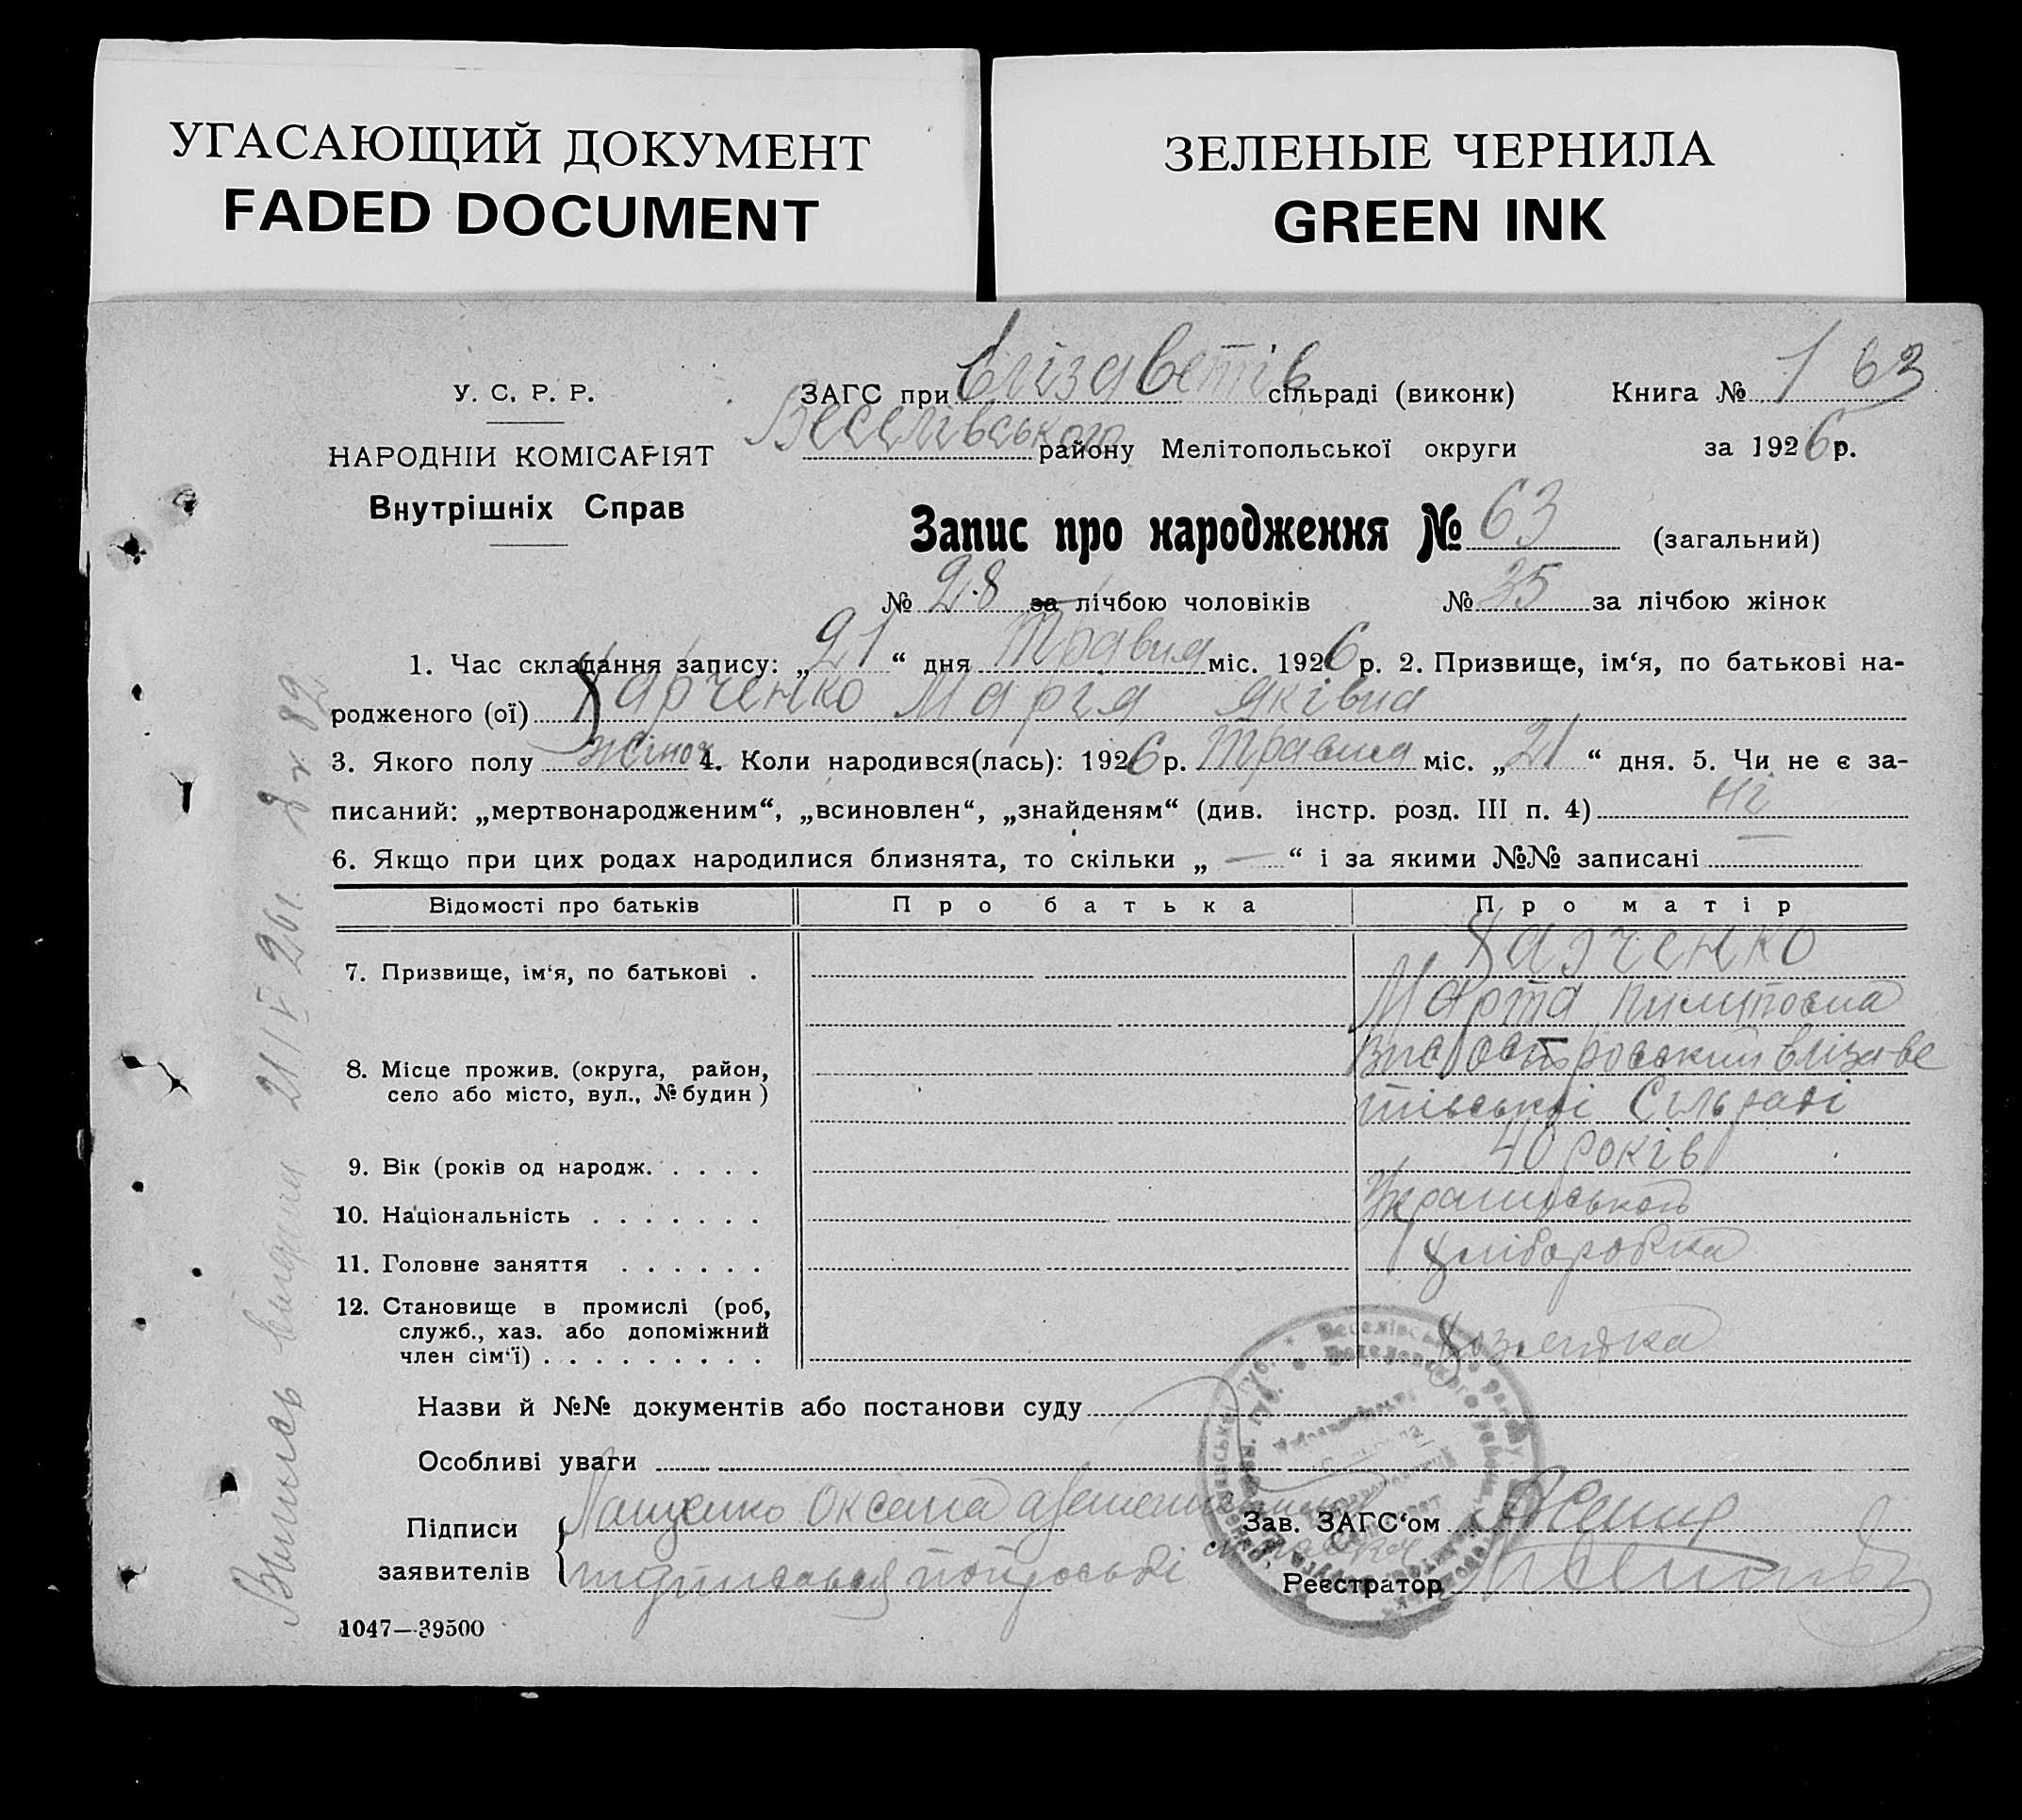 УГАСАЮЩИЙ ДОКУМЕНТ
FADED DOCUMENT
ЗЕЛЕНЫЕ ЧЕРНИЛА
GREEN INK
У. С. Р. Р.
НАРОДНІИ КОМІСАРІЯТ
Внутрішніх Справ
ЗАГС при Єлізаветів сільраді (виконк)
Веселівського району Мелітопольської округи
Книга № 1 63
за 1926 р.
Запис про народження № 63 (загальний)
№ 28 за лічбою чоловіків № 35 за лічбою жінок
1. Час складання запису: „21“ дня Травня міс. 1926 р. 2. Призвище, ім‘я, по батькові на-
родженого (ої) Харченко Марія Яківна
3. Якого полу жіноч 4. Коли народився(лась): 1926 р. Травня міс. „21“ дня. 5. Чи не є за-
писаний: „мертвонародженим“, „всиновлен“, „знайденям“ (див. інстр. розд. III п. 4) Ні
6. Якщо при цих родах народилися близнята, то скільки „ — “ і за якими №№ записані —
Відомості про батьків Про батька Про матір
7. Призвище, ім‘я, по батькові . Харченко
Марта Пилиповна
8. Місце прожив. (округа, район, Єлізаве
село або місто, вул., № будин) тівської Сільраді
9. Вік (років од народж. . . . . 40 років
10. Національність . . . . . . .
11. Головне заняття . . . . . . хліборобка
12. Становище в промислі (роб,
служб., хаз. або допоміжний
член сім‘ї) . . . . . . . . .
Назви й №№ документів або постанови суду
Особливі уваги
Підписи
заявителів
Лащенко Оксана
Зав. ЗАГС‘ом
Реєстратор
1047—39500
Выпись выдана 21/V 26г.